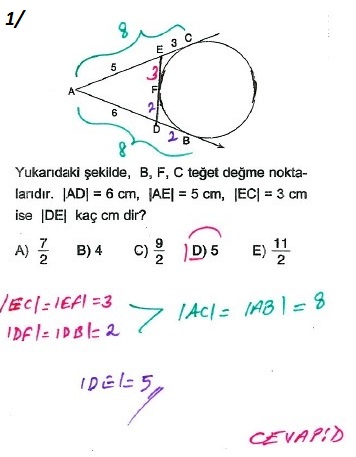 1/
8
E 3 C
5
3
A
F
6
2
D
2
B
8
Yukarıdaki şekilde, B, F, C teğet değme nokta-
larıdır. |AD| = 6 cm, |AE| = 5 cm, |EC| = 3 cm
ise |DE| kaç cm dir?
A) 7/2 B) 4 C) 9/2 D) 5 E) 11/2
|EC|=|EF|=3
|AC|=|AB|=8
|DF|=|DB|=2
|DE|=5
CEVAP:D